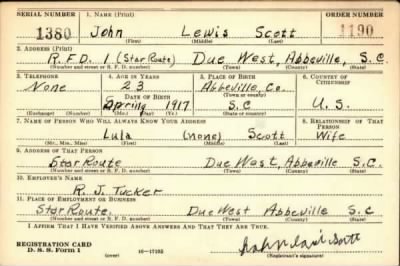 SERIAL NUMBER 1. NAME (Print) ORDER NUMBER
1380 John Lewis Scott 1190
(First) (Middle) (Last)
2. ADDRESS (Print)
R.F.D. 1 (Star Route) Due West, Abbeville, S.C.
(Number and street or R. F. D. number) (Town) (County) (State)
3. TELEPHONE 4. AGE IN YEARS 5. PLACE OF BIRTH 6. COUNTRY OF CITIZENSHIP
None 23 Abbeville, Co.
DATE OF BIRTH (Town or county)
Spring 1917 S.C U.S.
(Exchange) (Number) (Mo.) (Day) (Yr.) (State or country)
7. NAME OF PERSON WHO WILL ALWAYS KNOW YOUR ADDRESS 8. RELATIONSHIP OF THAT PERSON
Lula (none) Scott Wife
(Mr., Mrs., Miss) (First) (Middle) (Last)
9. ADDRESS OF THAT PERSON
Star Route Due West, Abbeville S.C.
(Number and street or R. F. D. number) (Town) (County) (State)
10. EMPLOYER'S NAME
R. J. Tucker
11. PLACE OF EMPLOYMENT OR BUSINESS
Star Route. Due West Abbeville S.C.
(Number and street or R. F. D. number) (Town) (County) (State)
I AFFIRM THAT I HAVE VERIFIED ABOVE ANSWERS AND THAT THEY ARE TRUE.
REGISTRATION CARD
D. S. S. Form 1 (over) (Registrant's signature)